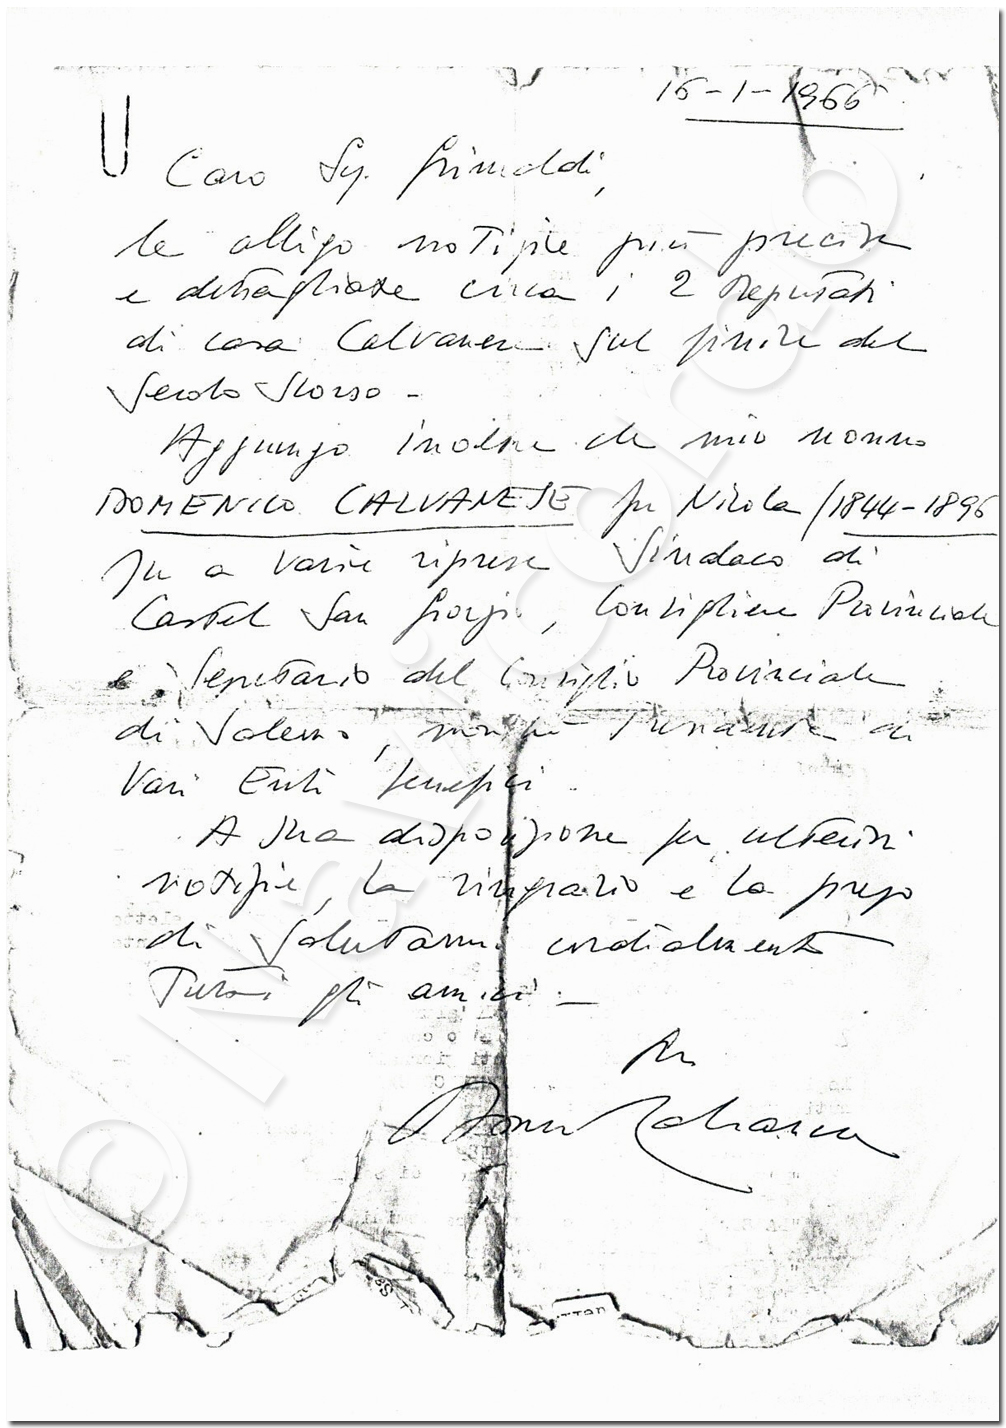 16-1-1966
Caro Sig. Grimaldi,
le allego notizie più precise
e dettagliate circa i 2 Deputati
di casa Calvanese sul finire del
secolo scorso -
Aggiungo inoltre che mio nonno
DOMENICO CALVANESE fu Nicola (1844-1896
fu a varie riprese Sindaco di
Castel San Giorgio, Consigliere Provinciale
e Segretario del Consiglio Provinciale
di Salerno, nonché Presidente di
vari Enti benefici.
A sua disposizione per ulteriori
notizie, la ringrazio e la prego
di salutarmi cordialmente
tutti gli amici -